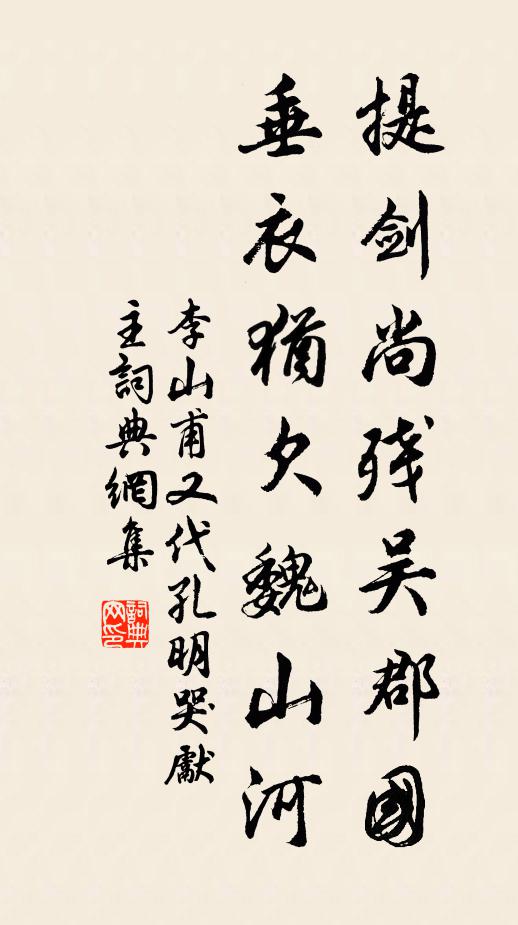 提剑尚残吴郡國
垂衣猶欠魏山河
李山甫又代孔明哭獻
主詞典網集
詞典网印